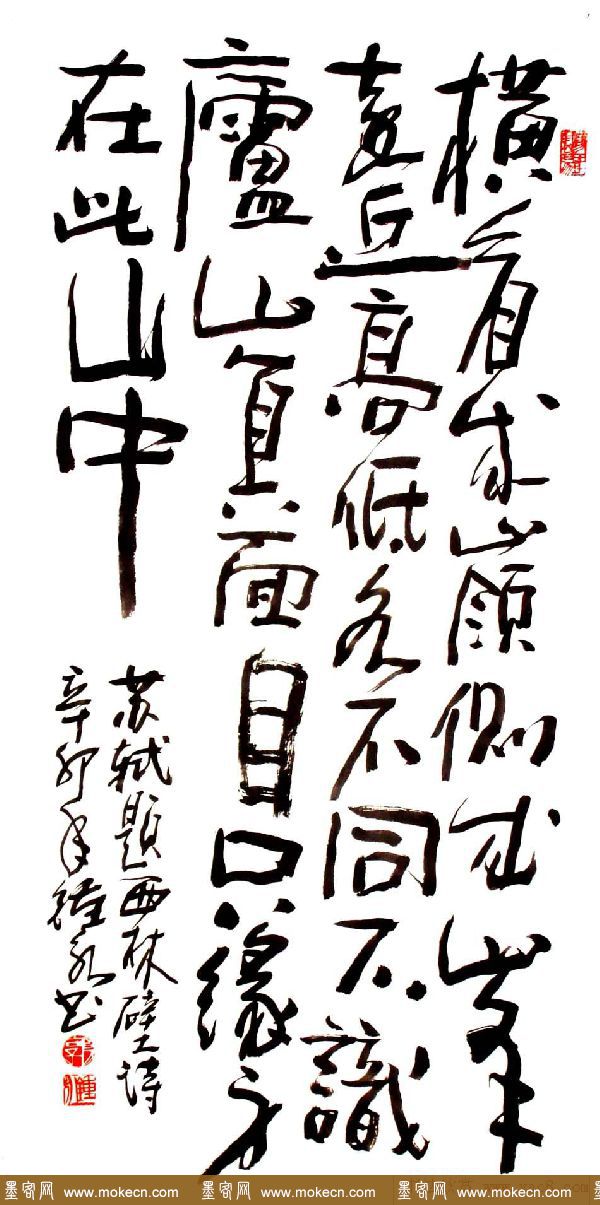 橫看成嶺侧成峯
遠近高低各不同不識
廬山真面目只緣身
在此山中
苏轼題西林壁诗
辛卯年鐘永书
墨客网 www.mokecn.com 墨客网 www.mokecn.com 墨客网 www.mokecn.com